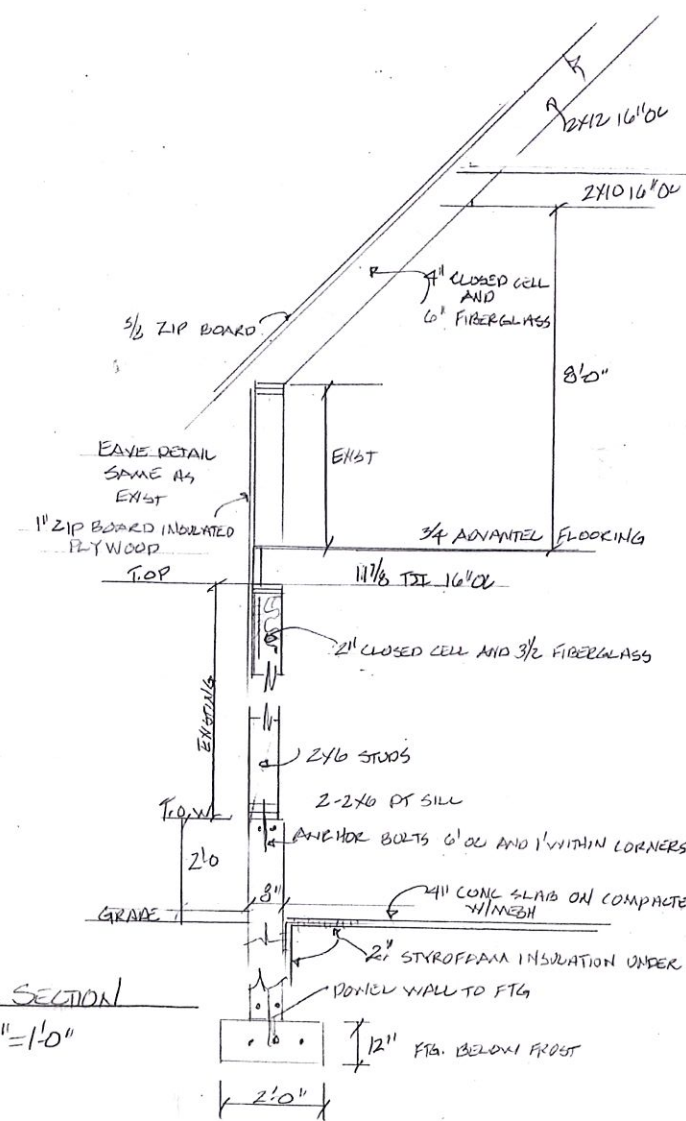 2X12 16"OC
2X10 16"OC
4" CLOSED CELL
AND
6" FIBERGLASS
ZIP BOARD
8'-0"
EAVE DETAIL
SAME AS
EXIST
EXIST
1" ZIP BOARD INSULATED
PLYWOOD
3/4 ADVANTEL FLOORING
T.O.P
11 7/8 TJI 16"OC
2" CLOSED CELL AND 3 1/2 FIBERGLASS
EXISTING
2X6 STUDS
2-2X6 PT SILL
T.O.W.
ANCHOR BOLTS 6'OC AND 1' WITHIN CORNERS
2'0
8"
4" CONC SLAB ON COMPACTE
W/MESH
GRADE
2" STYROFOAM INSULATION UNDER
SECTION
DOWEL WALL TO FTG
"=1'-0"
12" FTG. BELOW FROST
2'-0"